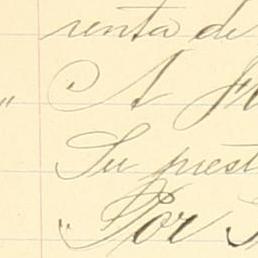 renta de
" A F
Su prest
" Por